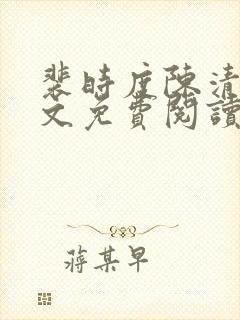 裴時度陳清
文免費閱讀
蔣某早